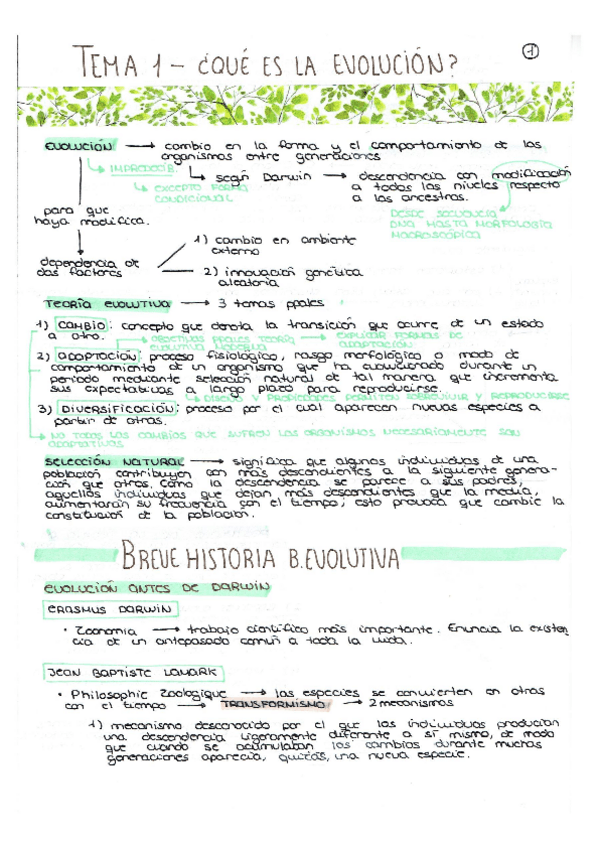 TEMA 1 - ¿QUÉ ES LA EVOLUCIÓN?
1
EVOLUCIÓN → cambio en la forma y el comportamiento de los
organismos entre generaciones
IMPREDECIB.
según Darwin → descendencia con modificación
a todos los niveles respecto
a los ancestros.
EXCEPTO FORMA
CONDICIONAL
DESDE SECUENCIA
DNA HASTA MORFOLOGÍA
MACROSCÓPICA
para que
haya modifica.
dependencia de
dos factores
1) cambio en ambiente
externo
2) innovación genética
aleatoria
TEORÍA EVOLUTIVA → 3 temas ppales
1) CAMBIO: concepto que denota la transición que ocurre de un estado
a otro.
OBJETIVOS PPALES TEORÍA
EVOLUTIVA MODERNA
→ EXPLICAR FORMAS DE
ADAPTACIÓN
2) ADAPTACIÓN: proceso fisiológico, rasgo morfológico o modo de
comportamiento de un organismo que ha evolucionado durante un
período mediante selección natural de tal manera que incrementa
sus expectativas a largo plazo para reproducirse.
DISEÑO Y PROPIEDADES PERMITEN SOBREVIVIR Y REPRODUCIRSE
3) DIVERSIFICACIÓN: proceso por el cual aparecen nuevas especies a
partir de otras.
NO TODOS LOS CAMBIOS QUE SUFREN LOS ORGANISMOS NECESARIAMENTE SON
ADAPTATIVOS
SELECCIÓN NATURAL → significa que algunos individuos de una
población contribuyen con más descendientes a la siguiente genera-
ción que otros. Como la descendencia se parece a sus padres,
aquellos individuos que dejan más descendientes que la media,
aumentarán su frecuencia con el tiempo; esto provoca que cambie la
constitución de la población.
BREVE HISTORIA B.EVOLUTIVA
EVOLUCIÓN ANTES DE DARWIN
ERASMUS DARWIN
• Zoonomia → trabajo científico más importante. Enuncia la existen
cia de un antepasado común a toda la vida.
JEAN BAPTISTE LAMARK
• Philosophie Zoologique → las especies se convierten en otras
con el tiempo → TRANSFORMISMO → 2 mecanismos
1) mecanismo desconocido por el que los individuos producían
una descendencia ligeramente diferente a sí mismo, de modo
que cuando se acumulaban los cambios durante muchas
generaciones aparecía, quizás, una nueva especie.